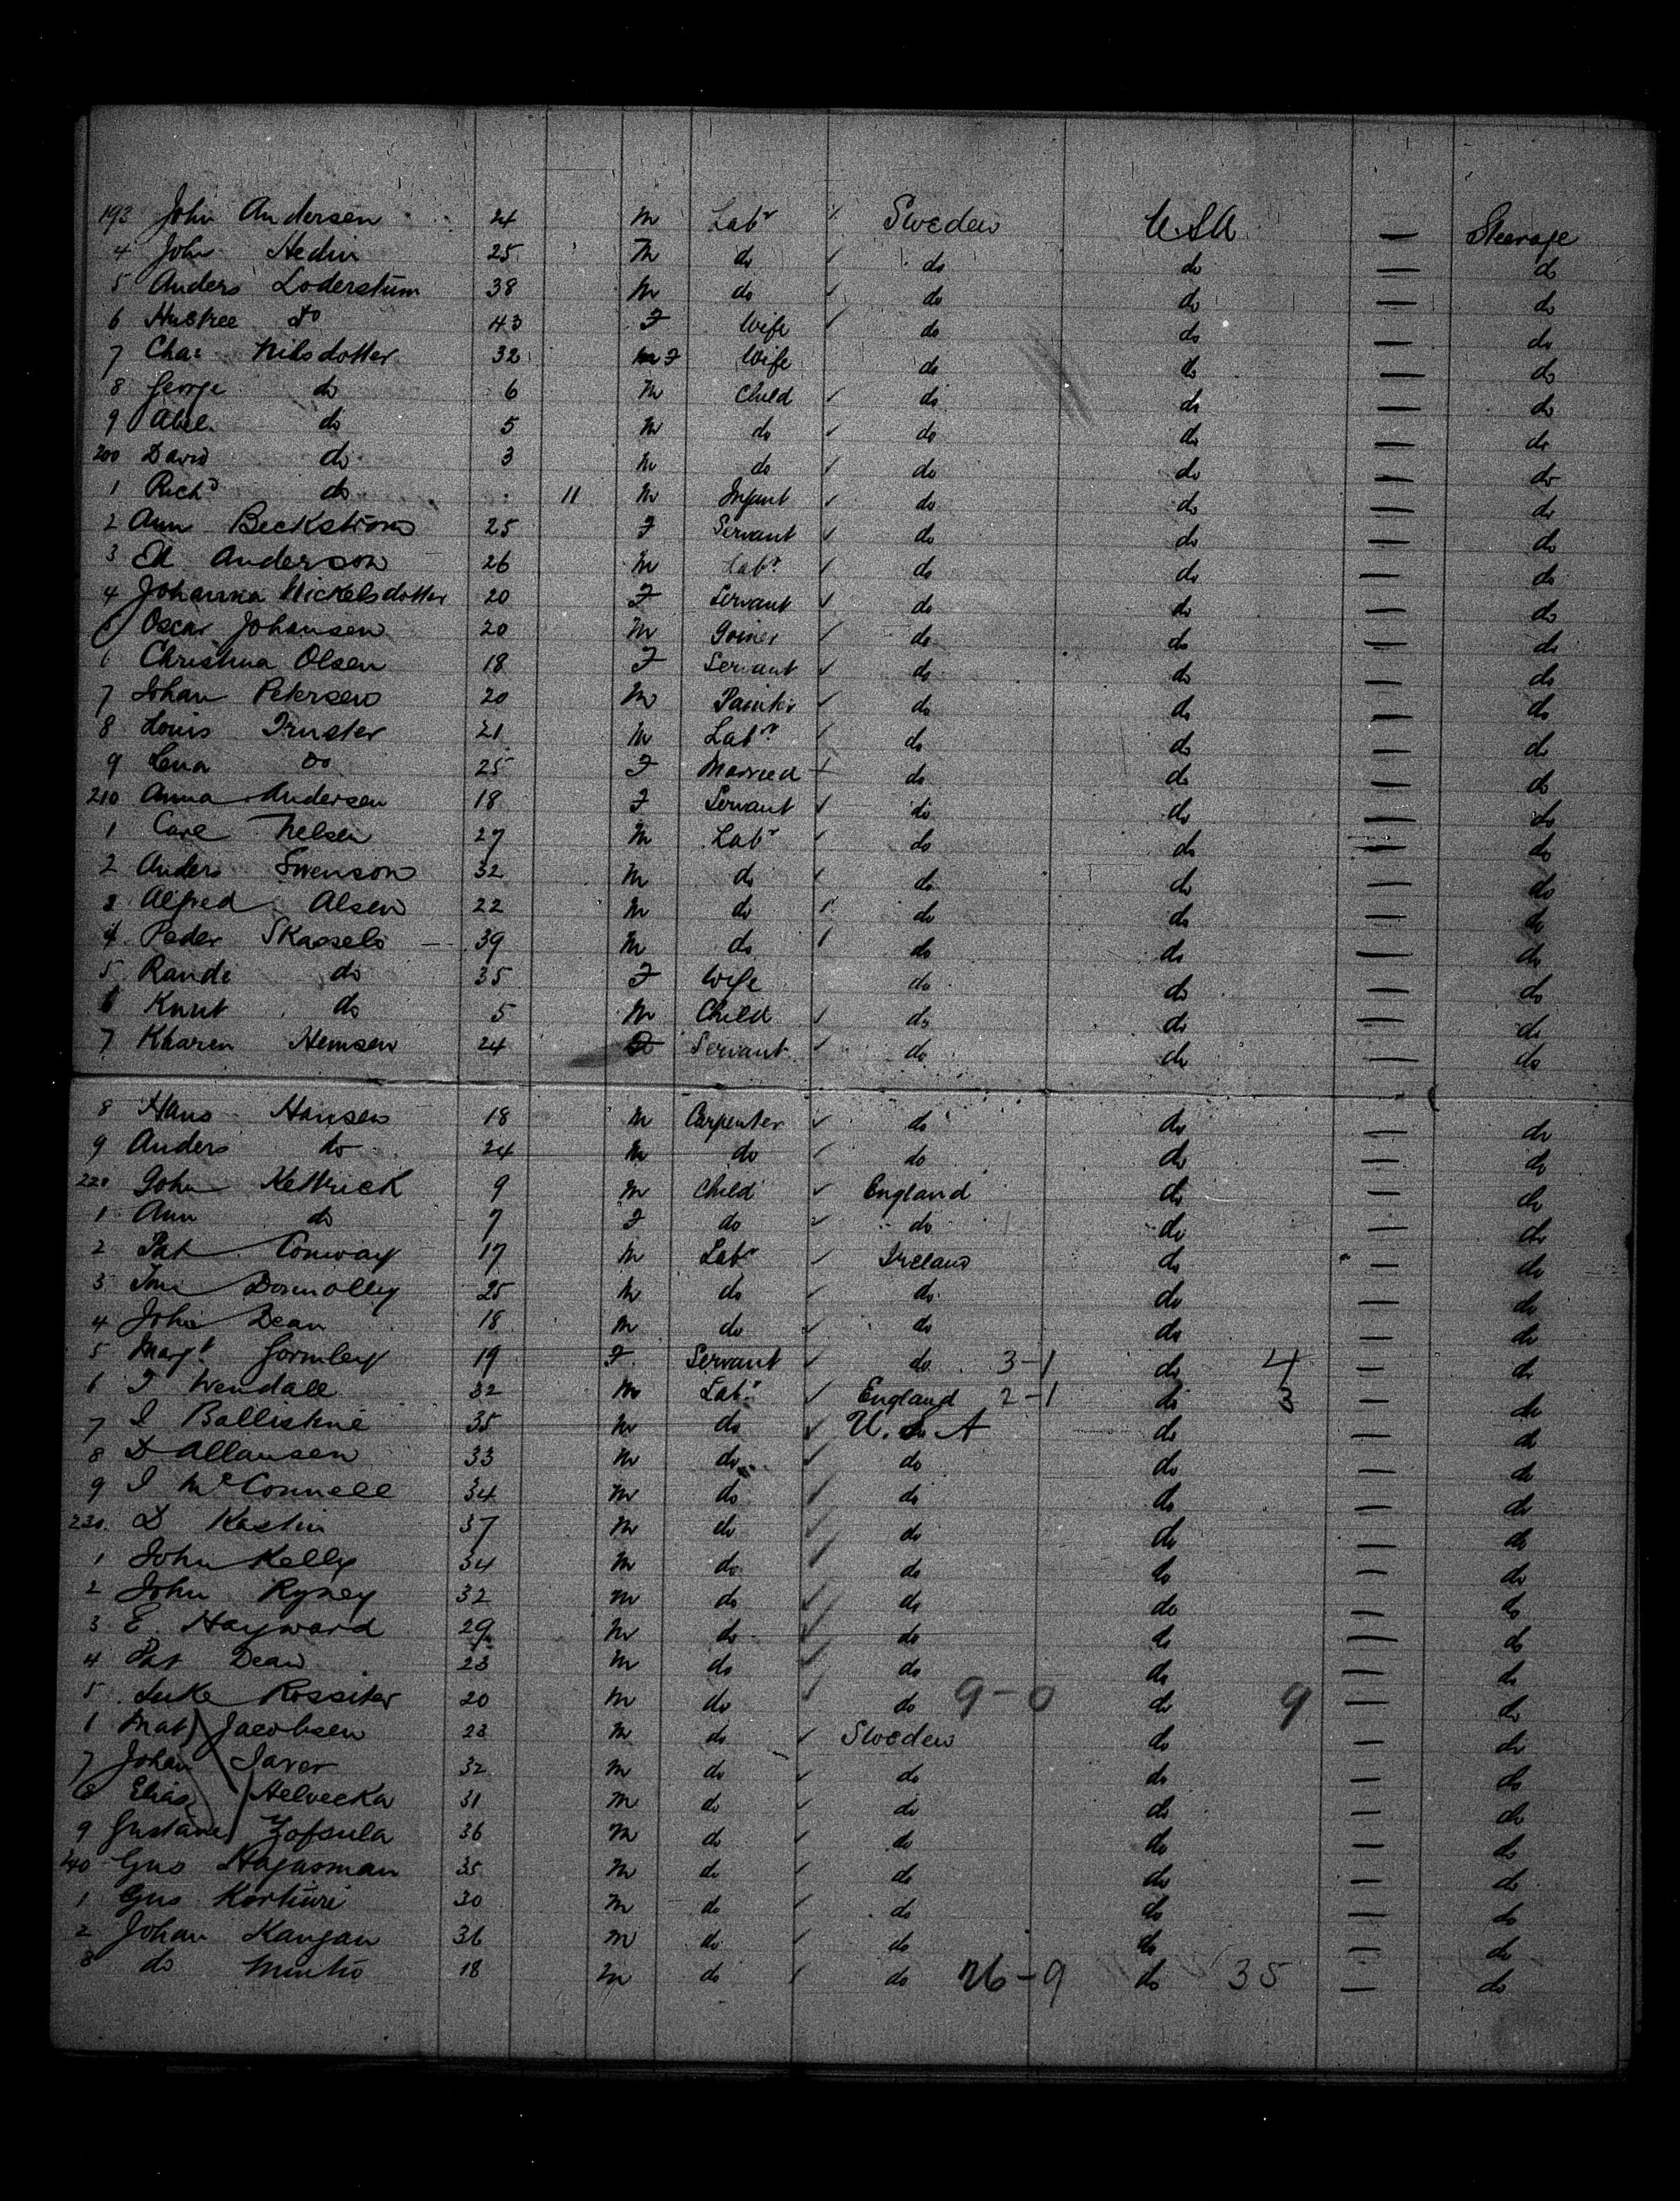 193 John Andersen 24 M Labr Sweden USA — Steerage
4 John Hedin 25 M do do do — do
5 Anders Loderstum 38 M do do do — do
6 Hustree do 43 F Wife do do — do
7 Chas Nilsdotter 32 F Wife do do — do
8 George do 6 M Child do do — do
9 Abel do 5 M do do do — do
200 David do 3 M do do do — do
1 Richd do 11 M Infant do do — do
2 Ann Beckstrom 25 F Servant do do — do
3 Ed Anderson 26 M Labr do do — do
4 Johanna Nickelsdotter 20 F Servant do do — do
5 Oscar Johansen 20 M Joiner do do — do
6 Christina Olsen 18 F Servant do do — do
7 Johan Petersen 20 M Painter do do — do
8 Louis Truster 21 M Labr do do — do
9 Lena do 25 F Married do do — do
210 Anna Andersen 18 F Servant do do — do
1 Carl Nelsen 27 M Labr do do — do
2 Anders Swenson 32 M do do do — do
3 Alfred Alsen 22 M do do do — do
4 Peder Skassels 39 M do do do — do
5 Randi do 35 F Wife do do — do
6 Knut do 5 M Child do do — do
7 Kharen Hemsen 24 Servant do do — do
8 Hans Hansen 18 M Carpenter do do — do
9 Anders do 24 M do do do — do
220 John Kettrick 9 M Child England do — do
1 Ann do 7 F do do do — do
2 Pat Conway 17 M Labr Ireland do — do
3 Donnolly 25 M do do do — do
4 John Dean 18 M do do do — do
5 Margt Gormley 19 F Servant do 3-1 do 4 — do
6 J Wendall 32 M Labr England 2-1 do 3 — do
7 J 35 M do U.S.A do — do
8 D Allansen 33 M do do do — do
9 J McConnell 34 M do do do — do
230 D Kastin 37 M do do do — do
1 John Kelly 34 M do do do — do
2 John Ryney 32 M do do do — do
3 E. Hayward 29 M do do do — do
4 Pat Dean 23 M do do do — do
5 Luke Rossiter 20 M do do 9-0 do 9 — do
6 Mat Jacobsen 23 M do Sweden do — do
7 Johan Saver 32 M do do do — do
8 Elias Helvecka 31 M do do do — do
9 Gustave Zofsula 36 M do do do — do
40 Gus Hajasman 35 M do do do — do
1 Gus 30 M do do do — do
2 Johan Kangan 36 M do do do — do
3 do 18 M do do 26-9 do 35 — do